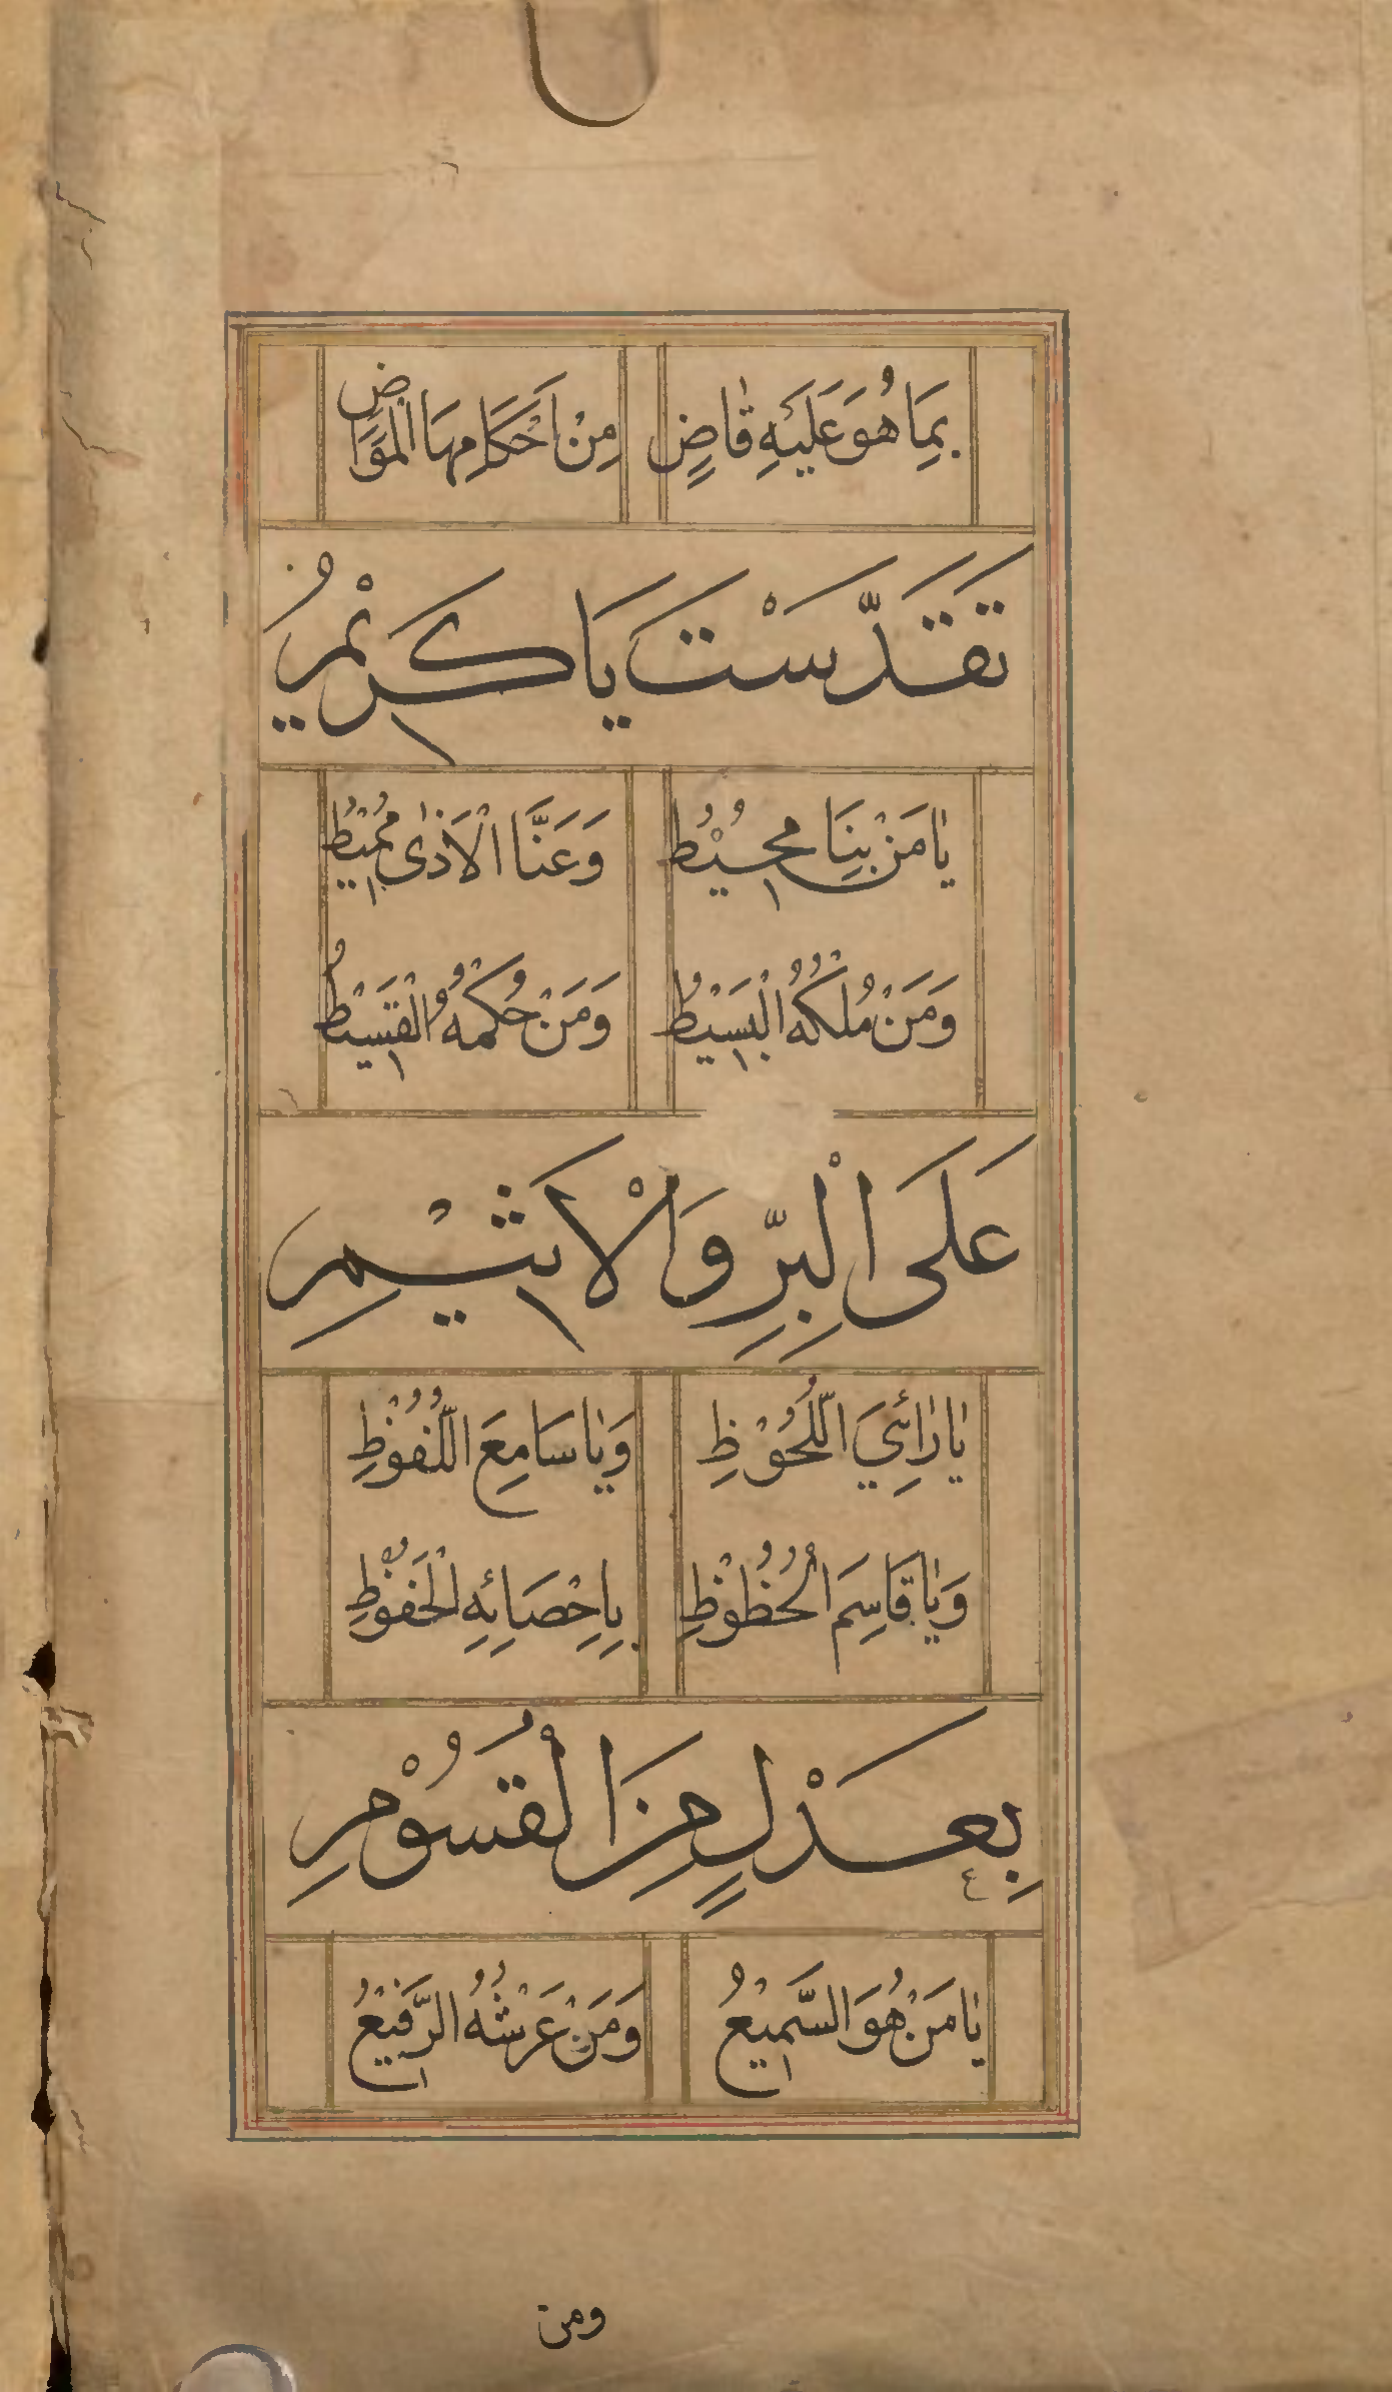 بِمَا هُوَ عَلَيْهِ قَاضٍ مِنْ اَحْكَامِهَا الْمَوَاضِ
تَقَدَّسْتَ يَا كَرِيْمُ
يَا مَنْ بِنَا مُحِيْطُ وَعَنَّا الْاَذٰى مُمِيْطُ
وَمَنْ مُلْكُهُ الْبَسِيْطُ وَمَنْ حُكْمُهُ الْقَسِيْطُ
عَلَى الْبِرِّ وَالْاَثِيْمِ
يَا رَائِيَ اللُّحُوْظِ وَيَا سَامِعَ اللُّفُوْظِ
وَيَا قَاسِمَ الْحُظُوْظِ بِاِحْصَائِهِ الْحَفُوْظِ
بِعَدْلٍ مِنَ الْقُسُوْمِ
يَا مَنْ هُوَ السَّمِيْعُ وَمَنْ عَرْشُهُ الرَّفِيْعُ
ومن